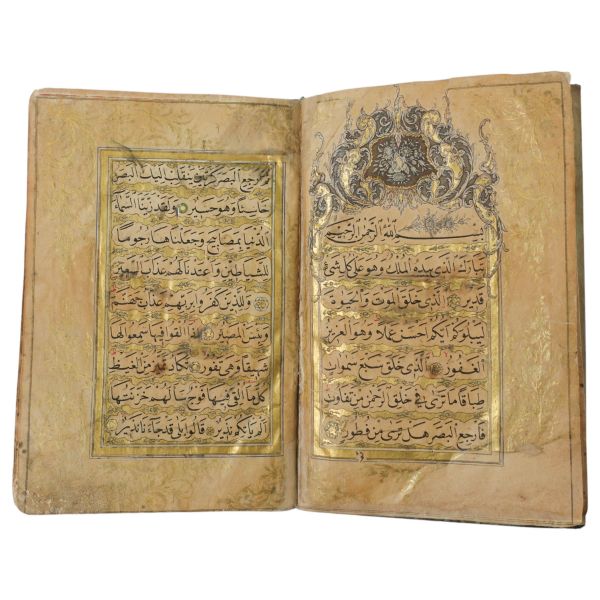 بسم الله الرحمن الرحيم
تبارك الذي بيده الملك وهو على كل شئ
قدير الذي خلق الموت والحيوة
ليبلوكم ايكم احسن عملا وهو العزيز
الغفور الذي خلق سبع سموات
طباقا ما ترى في خلق الرحمن من تفاوت
فارجع البصر هل ترى من فطور
ثم ارجع البصر كرتين ينقلب اليك البصر
خاسئا وهو حسير ولقد زينا السماء
الدنيا بمصابيح وجعلناها رجوما
للشياطين واعتدنا لهم عذاب السعير
وللذين كفروا بربهم عذاب جهنم
وبئس المصير اذا القوا فيها سمعوا لها
شهيقا وهي تفور تكاد تميز من الغيظ
كلما القي فيها فوج سألهم خزنتها
الم يأتكم نذير قالوا بلى قد جاءنا نذير